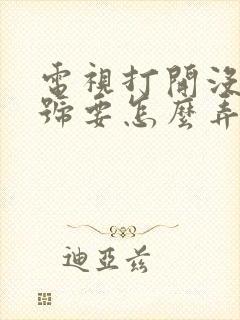 電視打開沒
號要怎麼弄
迪亞茲